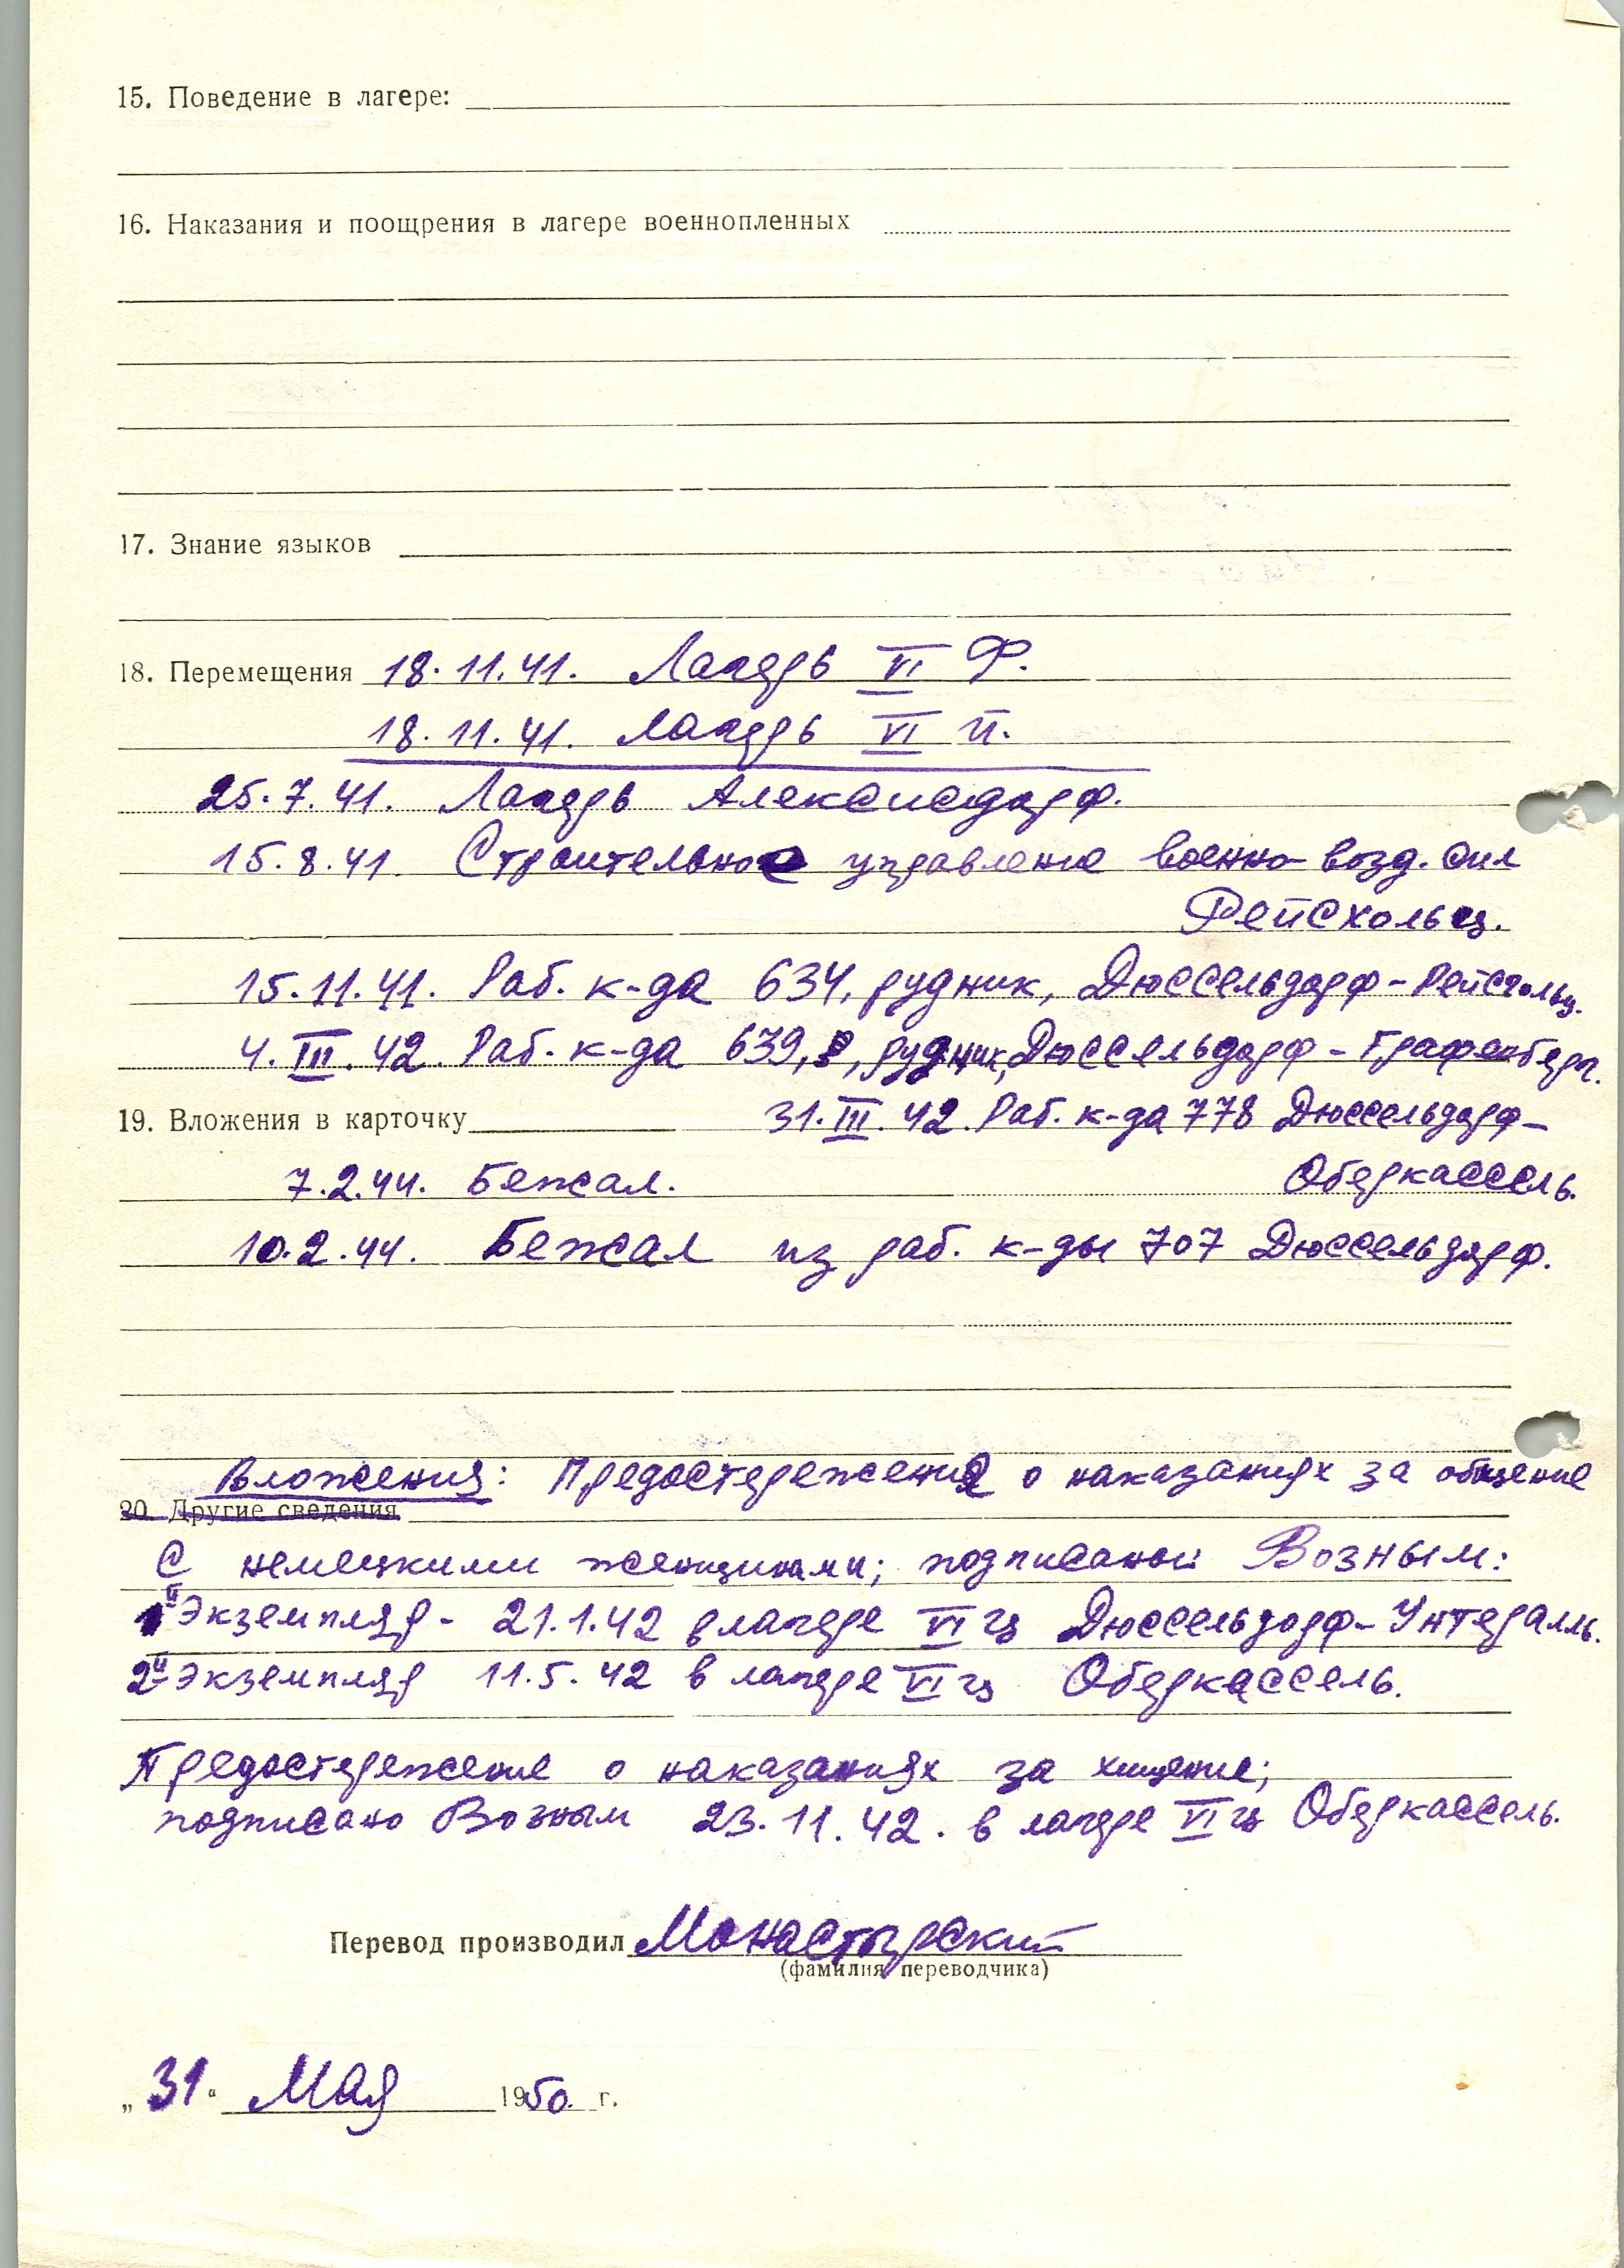 15. Поведение в лагере:
16. Наказания и поощрения в лагере военнопленных
17. Знание языков
18. Перемещения 18.11.41. Лагерь VI Ф.
18.11.41. Лагерь VI
25.7.41. Лагерь Алексисдорф.
15.8.41. Строительное управление военно-возд. сил
Рейсхольц.
15.11.41. Раб. к-да 634, рудник, Дюссельдорф-Рейсгольц.
4.III.42. Раб. к-да 639, рудник, Дюссельдорф-Графенберг.
19. Вложения в карточку 31.III.42. Раб. к-да 778 Дюссельдорф-
7.2.44. Бежал. Оберкассель.
10.2.44. Бежал из раб. к-ды 707 Дюссельдорф.
Вложения: Предостережения о наказаниях за общение
20. Другие сведения
с немецкими женщинами; подписаной Возным:
1й Экземпляр - 21.1.42 в лагере VI Дюссельдорф-Унтералль.
2й Экземпляр 11.5.42 в лагере VI Оберкассель.
Предостережение о наказаниях за хищение;
подписано Возным 23.11.42. в лагере VI Оберкассель.
Перевод производил Монастырский
(фамилия переводчика)
„31“ Мая 1950 г.